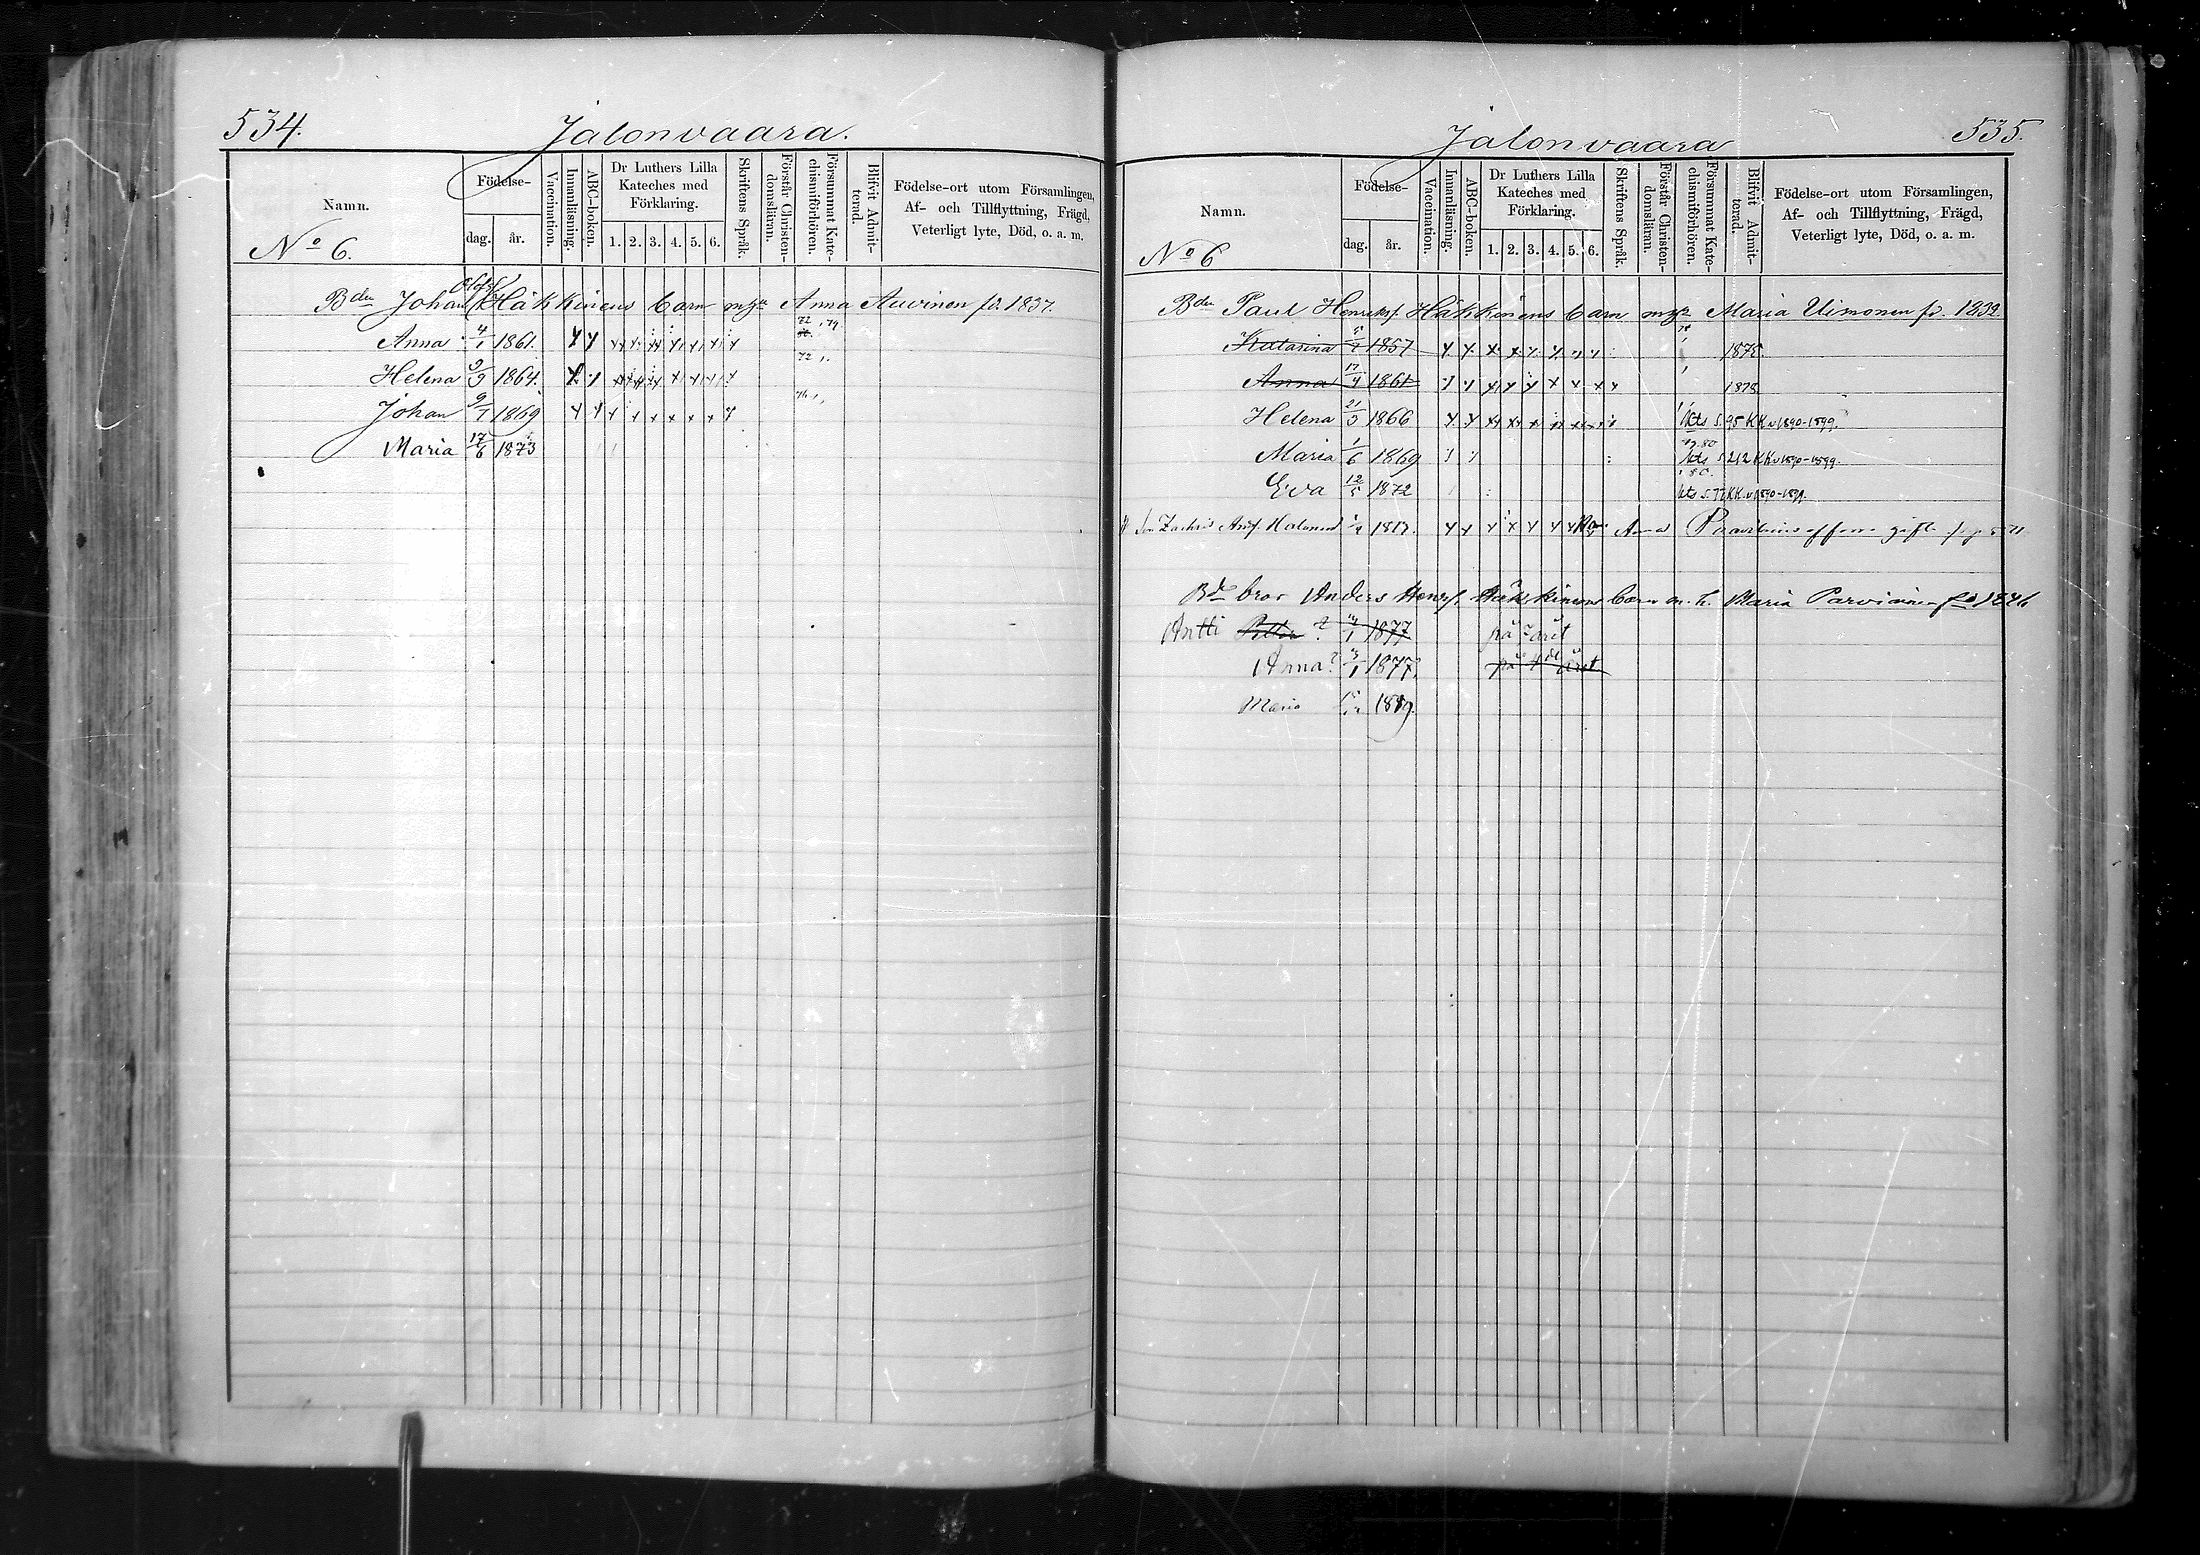 534.
Jalonvaara.
Namn.
No 6.
Födelse-
dag.
år.
Vaccination.
Innanläsning.
ABC-boken.
Dr Luthers Lilla
Kateches med
Förklaring.
1. 2. 3. 4. 5. 6.
Skriftens Språk.
Förstår Christen-
domsläran.
Försummat Kate-
chismiförhören.
Blifvit Admit-
terad.
Födelse-ort utom Församlingen,
Af- och Tillflyttning, Frägd,
Veterligt lyte, Död, o. a. m.
Olofsf.
Bden Johan Häkkinens barn Anna Auvinen fd. 1837.
Anna 4/1 1861. 72 79
Helena 1864. 72
Johan 9/1 1869
Maria 17/6 1873
535.
Jalonvaara
Namn.
No 6
Födelse-
dag.
år.
Vaccination.
Innanläsning.
ABC-boken.
Dr Luthers Lilla
Kateches med
Förklaring.
1. 2. 3. 4. 5. 6.
Skriftens Språk.
Förstår Christen-
domsläran.
Försummat Kate-
chismiförhören.
Blifvit Admit-
terad.
Födelse-ort utom Församlingen,
Af- och Tillflyttning, Frägd,
Veterligt lyte, Död, o. a. m.
Bden Paul Henriksf. Häkkinens barn Maria Uimonen fd. 1832
Katarina 1857 1875.
Anna 17/4 1861 1878
Helena 21/3 1866 kts s. 95 KK v 1890-1899.
Maria 1/6 1869 kts s 212 KK v 1890-1899.
Eva 12/5 1872 kts s. 77 KK v 1890-1899.
Zachris Halonen 1817.
Bd bror Anders Henrsf. Häkkinens barn m. h. Maria Parviainen fd 1846
Antti ? 1877 på 2 året
Anna? 3/1 1877? på 4de året
Maria 1889.